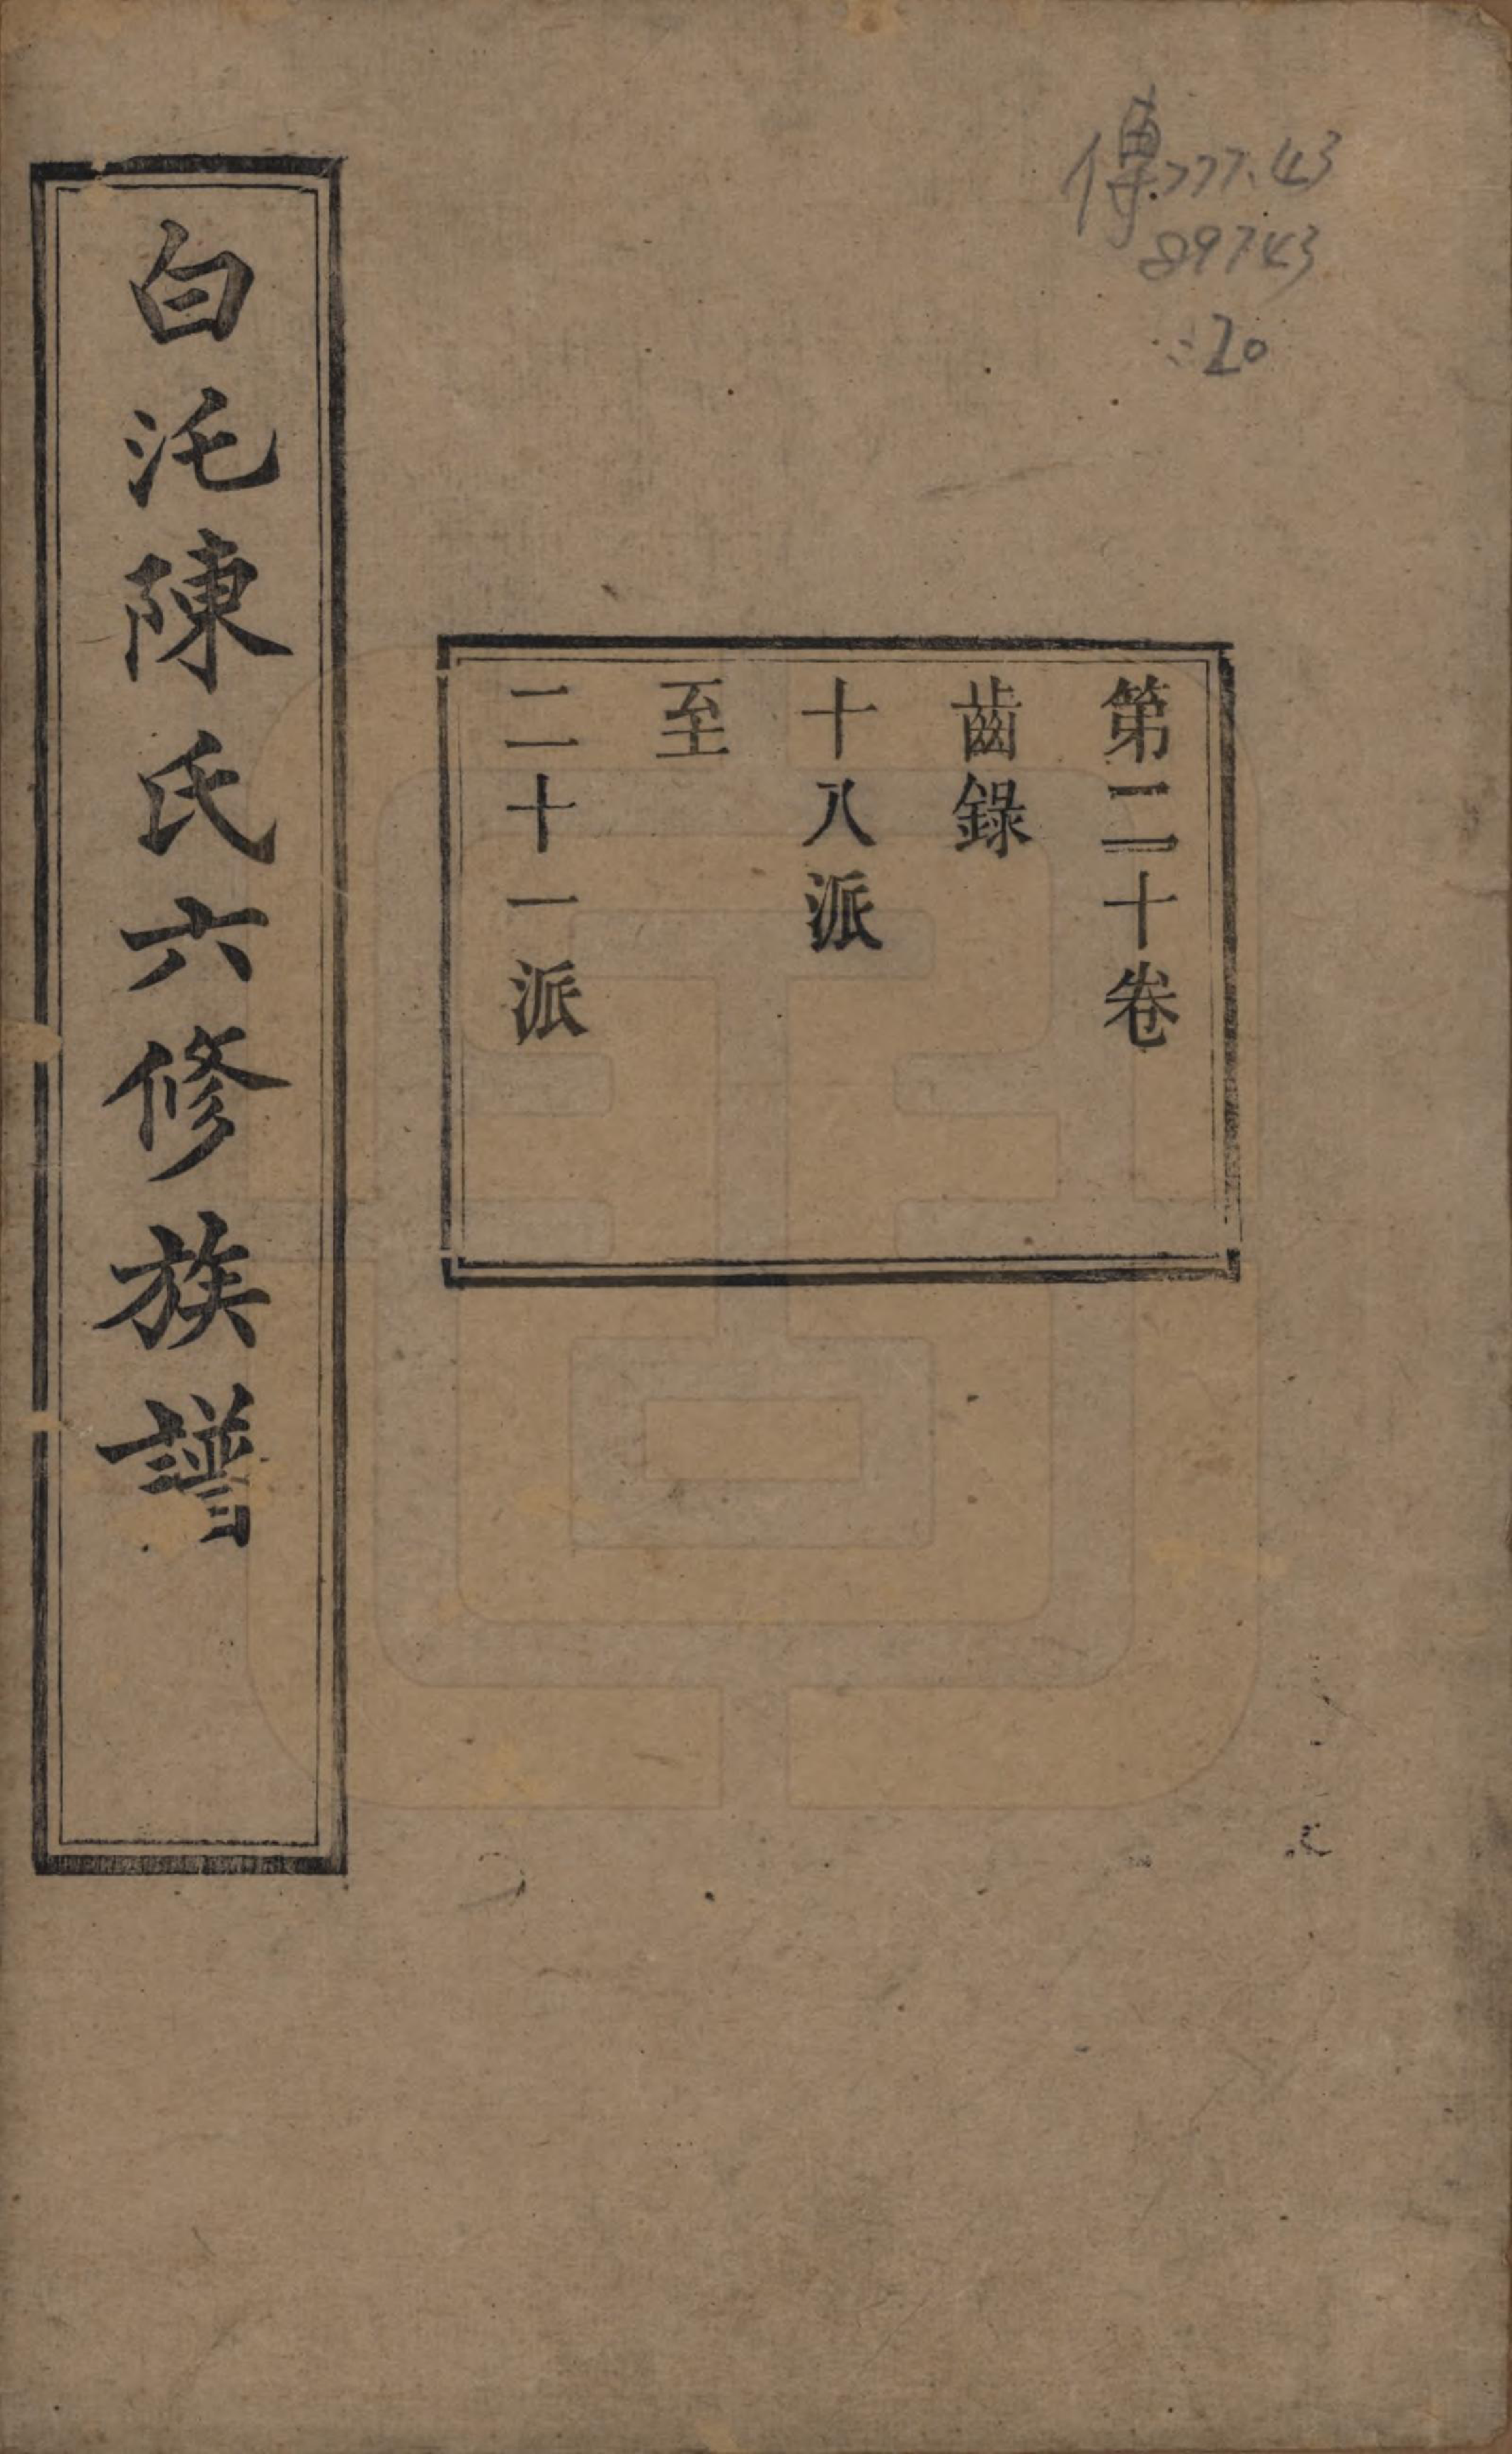 傳777.43
89743
:20
第二十卷
齒錄
十八派
至
二十一派
白沱陳氏六修族譜